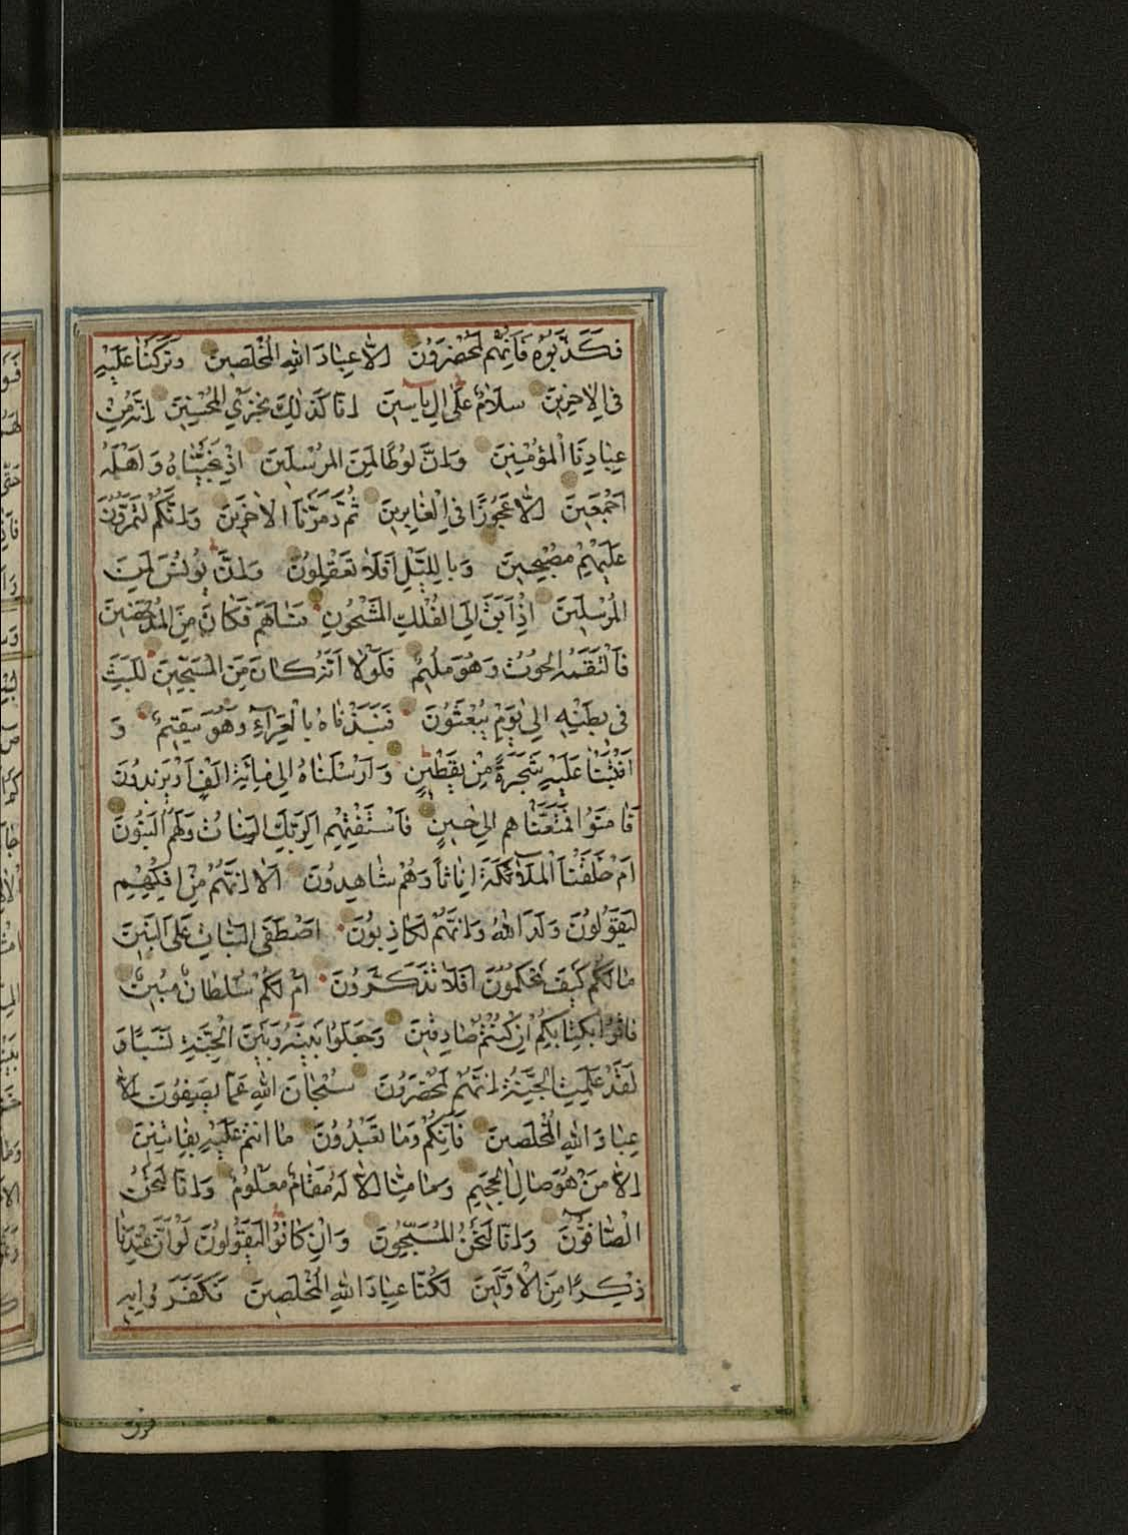 فَكَذَّبُوهُ فَاِنَّهُمْ لَمُحْضَرُونَ اِلَّا عِبَادَ اللهِ الْمُخْلَصِينَ وَتَرَكْنَا عَلَيْهِ
فِي الْاٰخِرِينَ سَلَامٌ عَلٰى اِلْ يَاسِينَ اِنَّا كَذٰلِكَ نَجْزِي الْمُحْسِنِينَ اِنَّهُ مِنْ
عِبَادِنَا الْمُؤْمِنِينَ وَاِنَّ لُوطًا لَمِنَ الْمُرْسَلِينَ اِذْ نَجَّيْنَاهُ وَاَهْلَهُ
اَجْمَعِينَ اِلَّا عَجُوزًا فِي الْغَابِرِينَ ثُمَّ دَمَّرْنَا الْاٰخَرِينَ وَاِنَّكُمْ لَتَمُرُّونَ
عَلَيْهِمْ مُصْبِحِينَ وَبِاللَّيْلِ اَفَلَا تَعْقِلُونَ وَاِنَّ يُونُسَ لَمِنَ
الْمُرْسَلِينَ اِذْ اَبَقَ اِلَى الْفُلْكِ الْمَشْحُونِ فَسَاهَمَ فَكَانَ مِنَ الْمُدْحَضِينَ
فَالْتَقَمَهُ الْحُوتُ وَهُوَ مُلِيمٌ فَلَوْلَا اَنَّهُ كَانَ مِنَ الْمُسَبِّحِينَ لَلَبِثَ
فِي بَطْنِهِ اِلٰى يَوْمِ يُبْعَثُونَ فَنَبَذْنَاهُ بِالْعَرَاءِ وَهُوَ سَقِيمٌ وَ
اَنْبَتْنَا عَلَيْهِ شَجَرَةً مِنْ يَقْطِينٍ وَاَرْسَلْنَاهُ اِلٰى مِائَةِ اَلْفٍ اَوْ يَزِيدُونَ
فَاٰمَنُوا فَمَتَّعْنَاهُمْ اِلٰى حِينٍ فَاسْتَفْتِهِمْ اَلِرَبِّكَ الْبَنَاتُ وَلَهُمُ الْبَنُونَ
اَمْ خَلَقْنَا الْمَلَائِكَةَ اِنَاثًا وَهُمْ شَاهِدُونَ اَلَا اِنَّهُمْ مِنْ اِفْكِهِمْ
لَيَقُولُونَ وَلَدَ اللهُ وَاِنَّهُمْ لَكَاذِبُونَ اَصْطَفَى الْبَنَاتِ عَلَى الْبَنِينَ
مَا لَكُمْ كَيْفَ تَحْكُمُونَ اَفَلَا تَذَكَّرُونَ اَمْ لَكُمْ سُلْطَانٌ مُبِينٌ
فَاْتُوا بِكِتَابِكُمْ اِنْ كُنْتُمْ صَادِقِينَ وَجَعَلُوا بَيْنَهُ وَبَيْنَ الْجِنَّةِ نَسَبًا وَ
لَقَدْ عَلِمَتِ الْجِنَّةُ اِنَّهُمْ لَمُحْضَرُونَ سُبْحَانَ اللهِ عَمَّا يَصِفُونَ اِلَّا
عِبَادَ اللهِ الْمُخْلَصِينَ فَاِنَّكُمْ وَمَا تَعْبُدُونَ مَا اَنْتُمْ عَلَيْهِ بِفَاتِنِينَ
اِلَّا مَنْ هُوَ صَالِ الْجَحِيمِ وَمَا مِنَّا اِلَّا لَهُ مَقَامٌ مَعْلُومٌ وَاِنَّا لَنَحْنُ
الصَّافُّونَ وَاِنَّا لَنَحْنُ الْمُسَبِّحُونَ وَاِنْ كَانُوا لَيَقُولُونَ لَوْ اَنَّ عِنْدَنَا
ذِكْرًا مِنَ الْاَوَّلِينَ لَكُنَّا عِبَادَ اللهِ الْمُخْلَصِينَ فَكَفَرُوا بِهِ